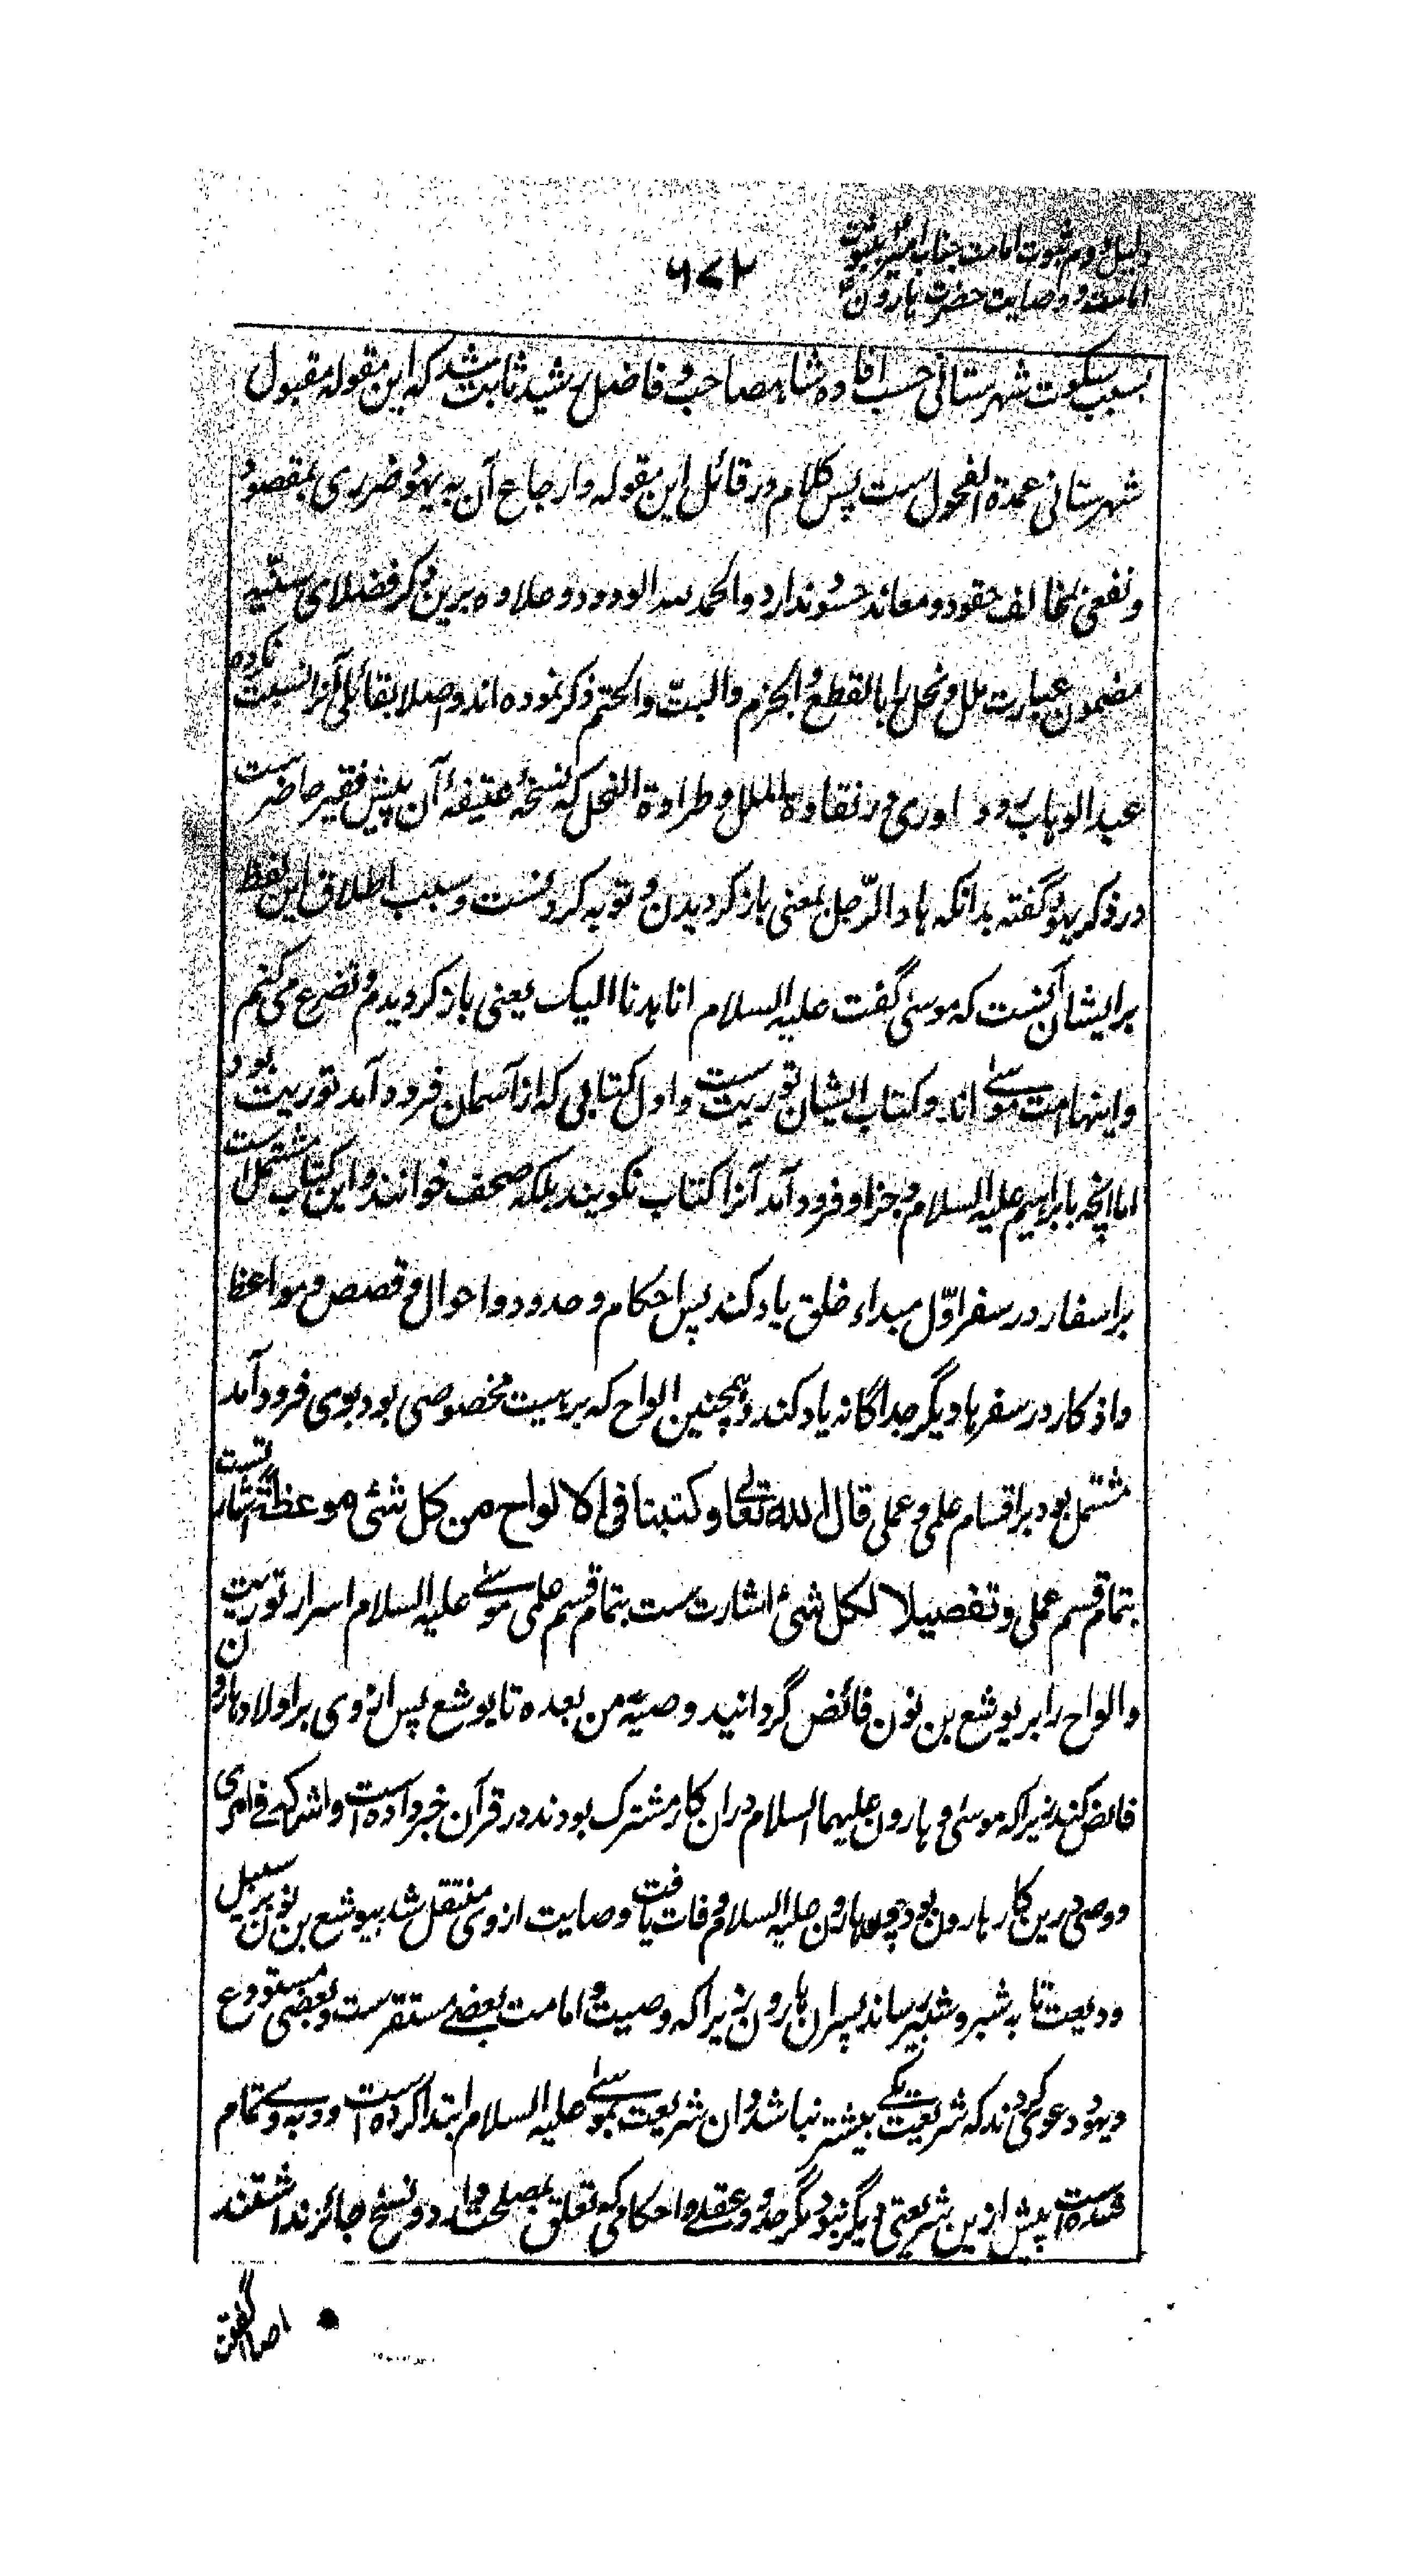 دلیل دوم ثبوت امامت جناب امیر بثبوت
امامت و وصایت حضرت هارون
۶۷۲
بسبب سکوت شهرستانی حسب افاده شاهصاحب و فاضل رشید ثابت شد که این مقوله مقبول
شهرستانی عمدة الفحول است پس کلام در قائل این مقوله وارجاع آن به یهود ضرری بمقصود
و نفعی بمخالف حقود و معاند حسود ندارد والحمد لله الودود و علاوه برین دیگر فضلای سنّیه
مضمون عبارت ملل و نحل را بالقطع والجزم والبتّ والحتم ذکر نموده اند و اصلا بقائلی آنرا نسبت نکرده
عبدالوهاب در نقاوة الملل و طراوة النحل که نسخهٔ عتیقهٔ آن پیش فقیر حاضر ست
در ذکر یهود گفته بدانکه هاد الرّجل بمعنی باز گردیدن و توبه کردنست و سبب اطلاق این لفظ
بر ایشان آنست که موسی گفت علیه السلام انا هدنا الیک یعنی باز گردیدم و تضرع می کنم
و اینها امت موسی اند و کتاب ایشان توریت ست و اول کتابی که از آسمان فرود آمد توریت بود
اما انچه بابراهیم علیه السلام و جز او فرود آمد آنرا کتاب نگویند بلکه صحف خوانند و این کتاب مشتمل است
بر اسفار در سفر اوّل مبداء خلق یاد کند پس احکام و حدود و احوال و قصص و مواعظ
و اذکار در سفرها دیگر جداگانه یاد کند و همچنین الواح که بر هیئت مخصوصی بود بوی فرود آمد
مشتمل بود بر اقسام علمی و عملی قال الله تعالی و کتبنا فی الالواح من کل شئی موعظة اشارتست
بتمام قسم عملی و تفصیلا لکل شئ اشارت ست بتمام قسم علمی موسی علیه السلام اسرار توریت
و الواح را بر یوشع بن نون فائض گردانید وصیّة من بعده تا یوشع پس از وی بر اولاد هارون
فائض کند زیرا که موسی و هارون علیهما السلام دران کار مشترک بودند در قرآن خبر داده است و اشرکه فی امری
و وصی درین کار هارون بود چون هارون علیه السلام وفات یافت وصایت از وی منتقل شد بیوشع بن نون بر سبیل
ودیعت تا به شبر و شبیر رساند پسران هارون زیرا که وصیت و امامت بعضے مستقر ست و بعضی مستودع
و یهود دعوی کردند که شریعت یکے بیشتر نباشد و ان شریعت بموسی علیه السلام ابتدا کرده است و به وے تمام
شده است پیش ازین شریعتی دیگر نبود مگر حدود عقلے و احکامی که تعلق بمصلحت دارد و نسخ جائز نداشتند
اصلا گفت